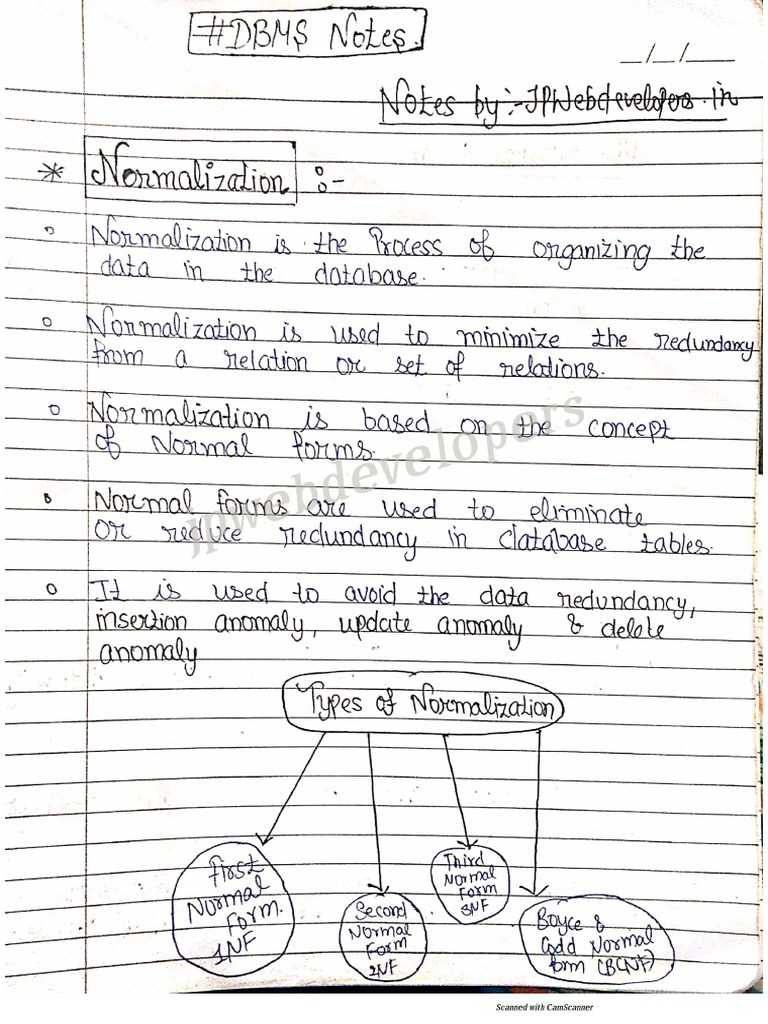 #DBMS Notes.
_/_/__
Notes by:-JPWebdevelopers.in
* Normalization :-
◦ Normalization is the Process of organizing the
data in the database.
◦ Normalization is used to minimize the redundancy
from a relation or set of relations.
◦ Normalization is based on the concept
of Normal forms.
◦ Normal forms are used to eliminate
or reduce redundancy in database tables.
◦ It is used to avoid the data redundancy,
insertion anomaly, update anomaly & delete
anomaly
jpwebdevelopers
Types of Normalization
First
Normal
Form.
1NF
Second
Normal
Form
2NF
Third
Normal
Form
3NF
Boyce &
Codd Normal
form (BCNF)
Scanned with CamScanner